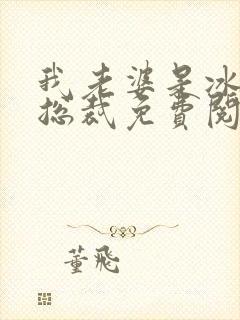 我老婆是冰
总裁免费阅
董飛